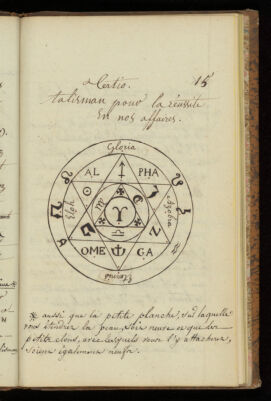 15
talisman pour la réussite
En nos affaires.
Gloria
AL PHA
OME GA
aussi que la petite planche, sur laquelle
vous étendrez la peau, soie neuve ce que des
petits clous, avec lesquels vous l'y attacherez,
soient également neufs.